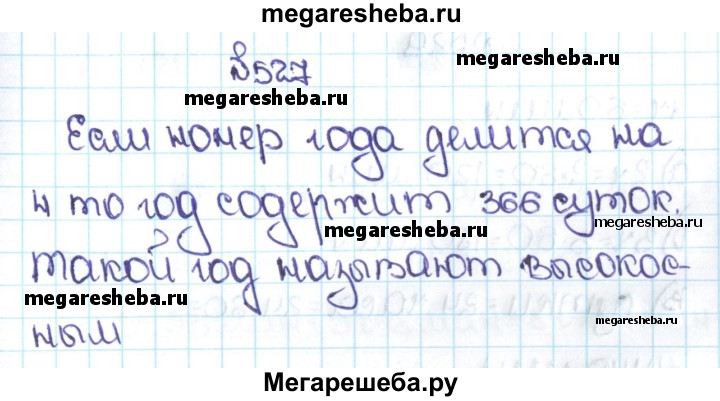 megaresheba.ru
№527
megaresheba.ru
megaresheba.ru
Если номер года делится на
4 то год содержит 366 суток.
megaresheba.ru
такой год называют высокос-
megaresheba.ru
ным
megaresheba.ru
Мегарешеба.ру